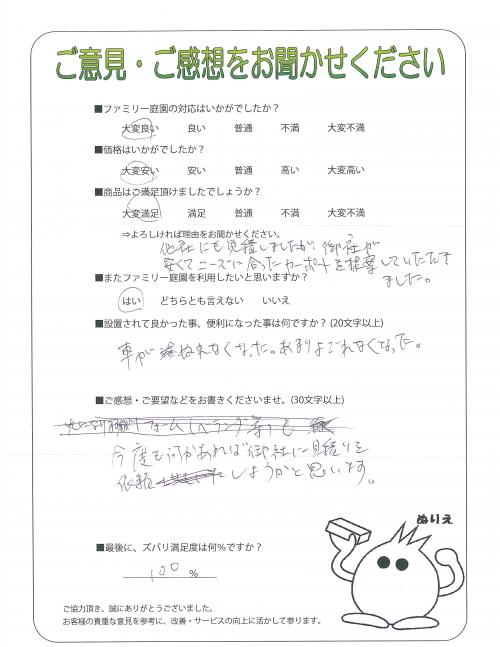 ご意見・ご感想をお聞かせください
■ファミリー庭園の対応はいかがでしたか？
大変良い 良い 普通 不満 大変不満
■価格はいかがでしたか？
大変安い 安い 普通 高い 大変高い
■商品はご満足頂けましたでしょうか？
大変満足 満足 普通 不満 大変不満
⇒よろしければ理由をお聞かせください。
他社にも見積しましたが、御社が
安くてニーズに合ったカーポートを提案していただき
ました。
■またファミリー庭園を利用したいと思いますか？
はい どちらとも言えない いいえ
■設置されて良かった事、便利になった事は何ですか？(20文字以上)
車がぬれなくなった。あまりよごれなくなった。
■ご感想・ご要望などをお書きくださいませ。(30文字以上)
今度も何かあれば御社に見積りを
依頼しようかと思います。
■最後に、ズバリ満足度は何％ですか？
100 %
ぬりえ
ご協力頂き、誠にありがとうございました。
お客様の貴重な意見を参考に、改善・サービスの向上に活かして参ります。